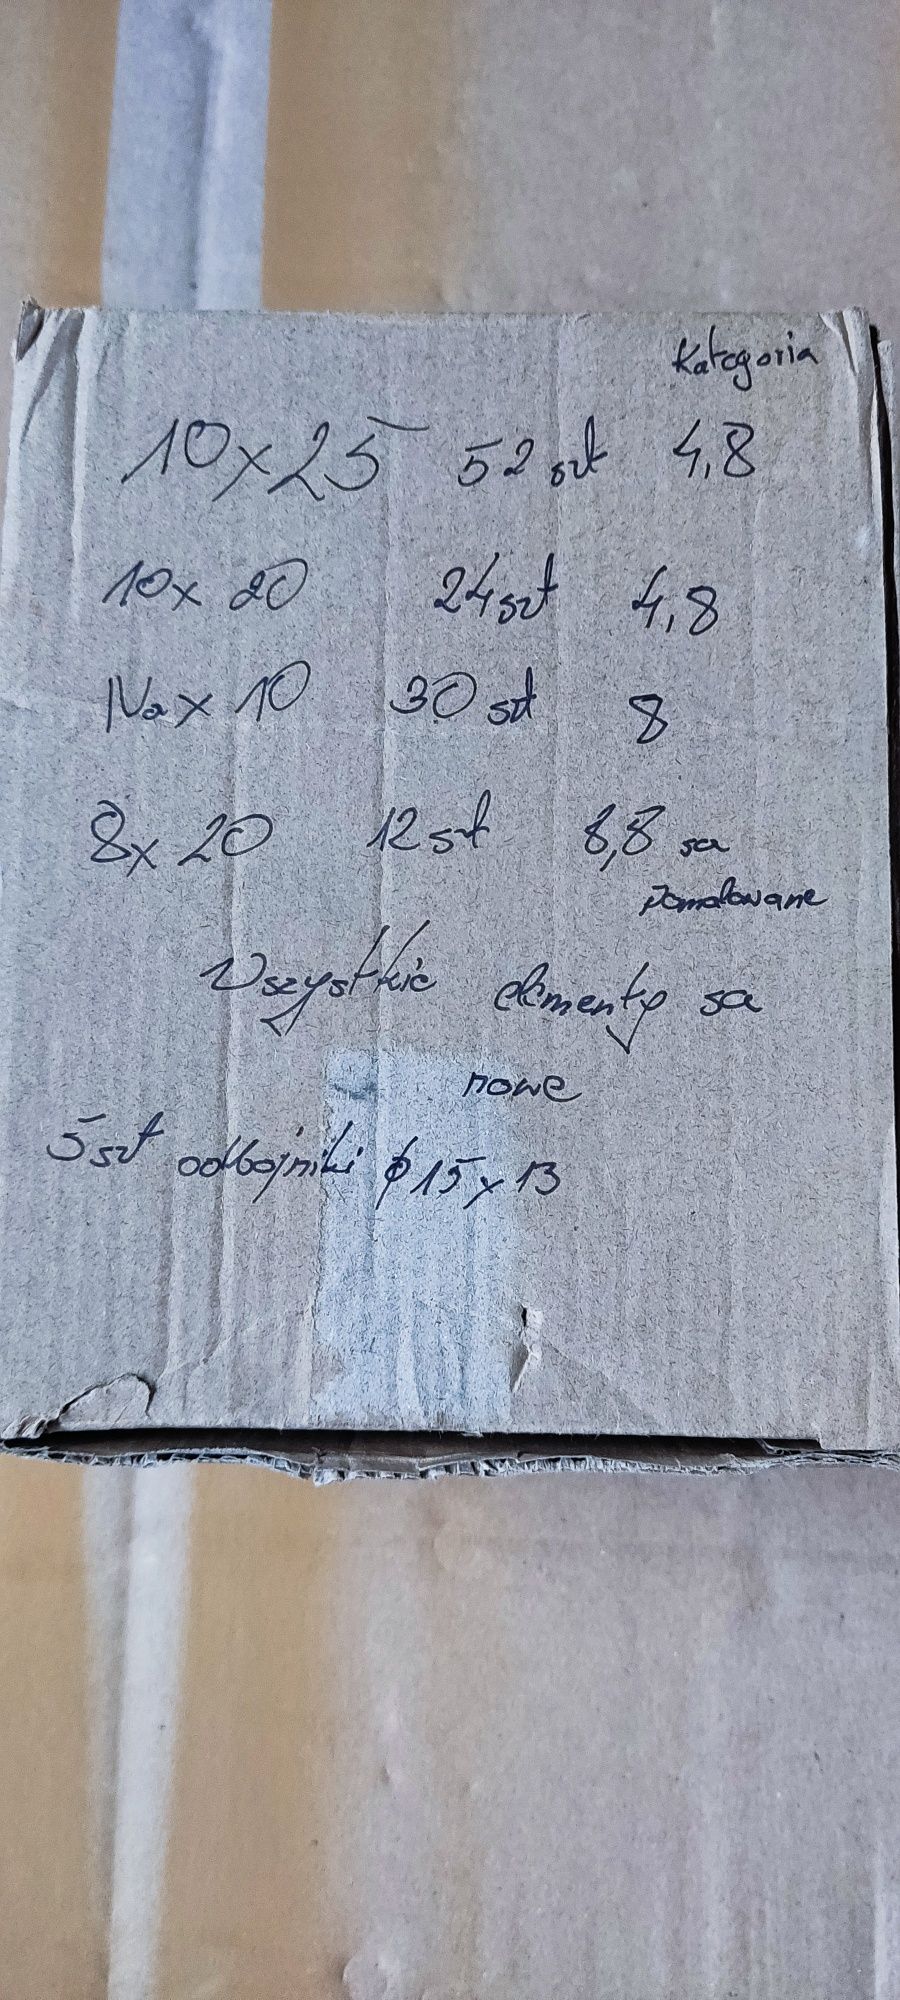 Kategoria
10x25 52 szt 4,8
10x20 24 szt 4,8
Na x 10 30 szt 8
8x20 12 szt 8,8 sa
pomalowane
Wszystkie elementy sa
nowe
5 szt odbojniki ϕ 15x13